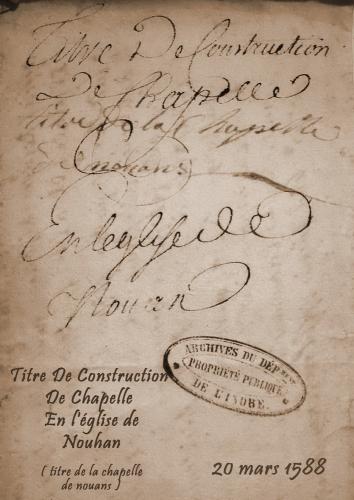 Titre De Construction
De Chapelle
titre de la Chapelle
de nouans
En leglise de
Nouan
ARCHIVES DU DÉP.
PROPRIÉTÉ PUBLIQUE
DE L'INDRE.
Titre De Construction
De Chapelle
En l'église de
Nouhan
( titre de la chapelle
de nouans )
20 mars 1588